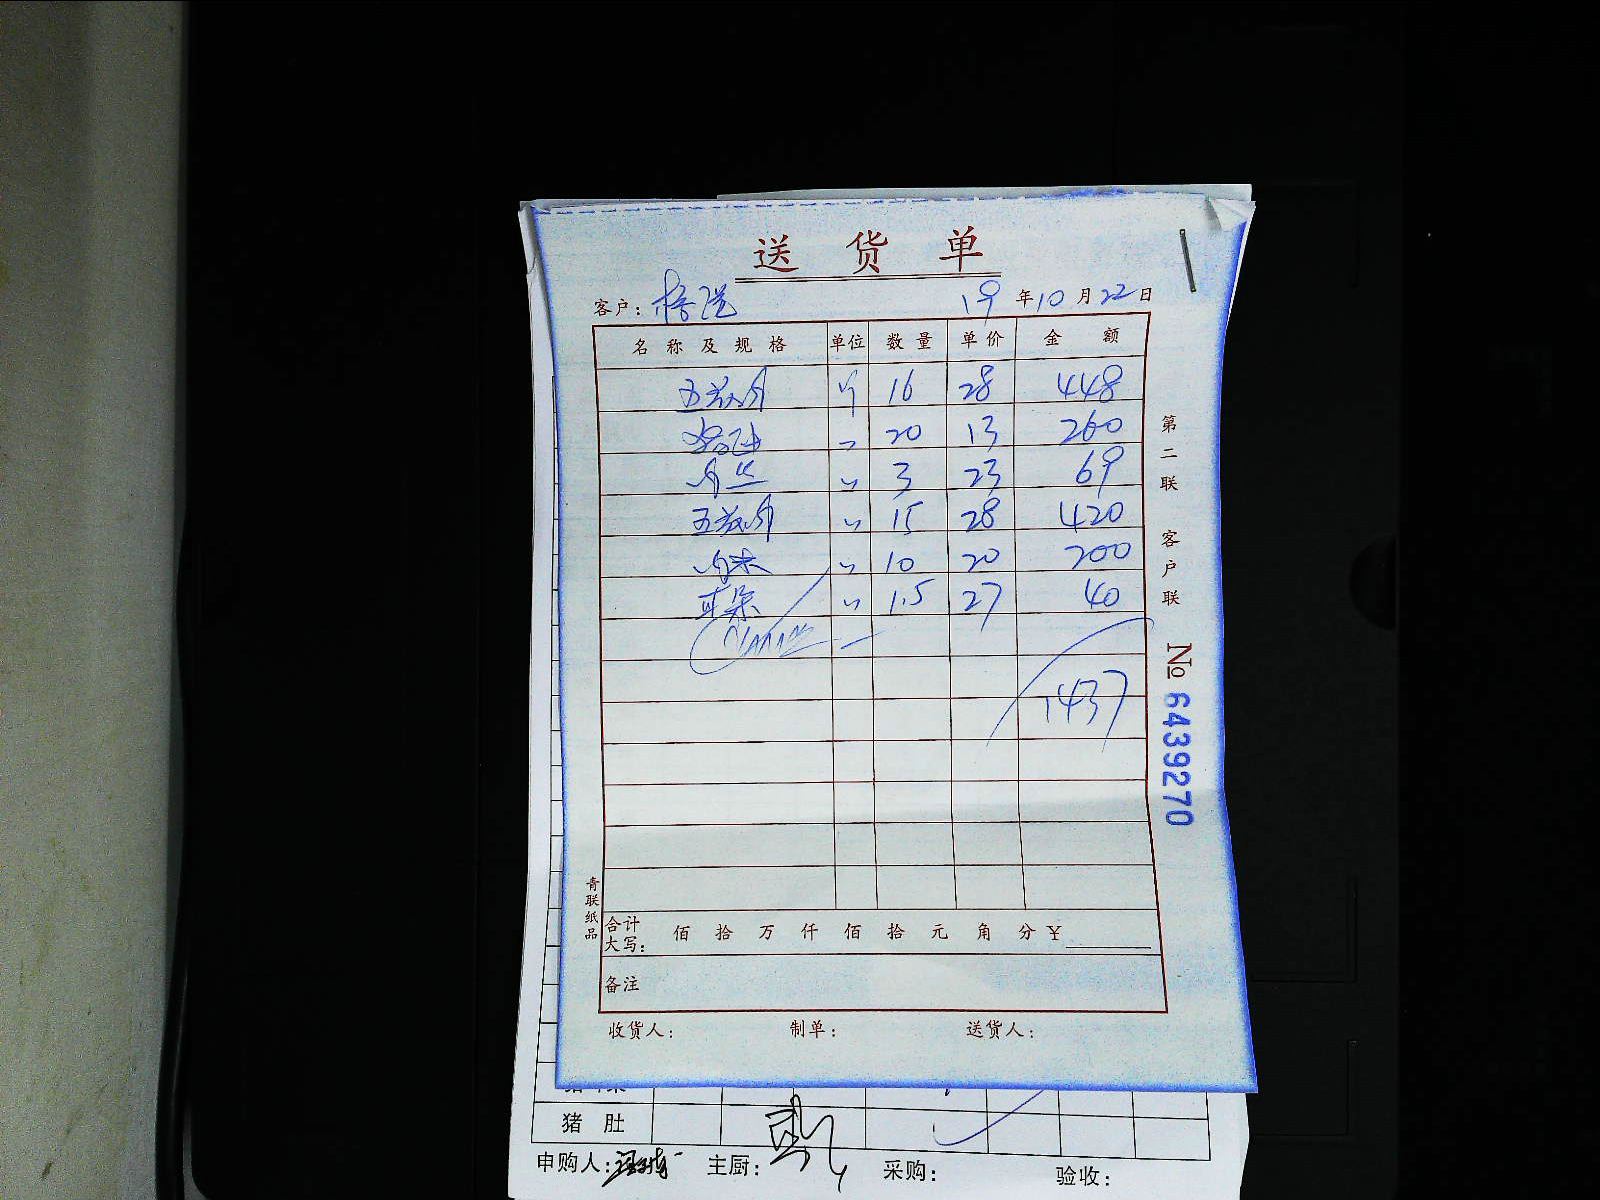 送 货 单
客户: 19 年 10 月 22 日
名 称 及 规 格 单位 数 量 单 价 金 额
五花肉 斤 16 28 448
20 13 260
肉丝 〃 3 23 69
五花肉 〃 15 28 420
肉末 〃 10 20 200
耳朵 〃 1.5 27 40
1437
第二联 客户联
№ 6439270
青联纸品
合计
大写: 佰 拾 万 仟 佰 拾 元 角 分 ¥
备注
收货人: 制单: 送货人:
猪 肚
申购人: 主厨: 采购: 验收: